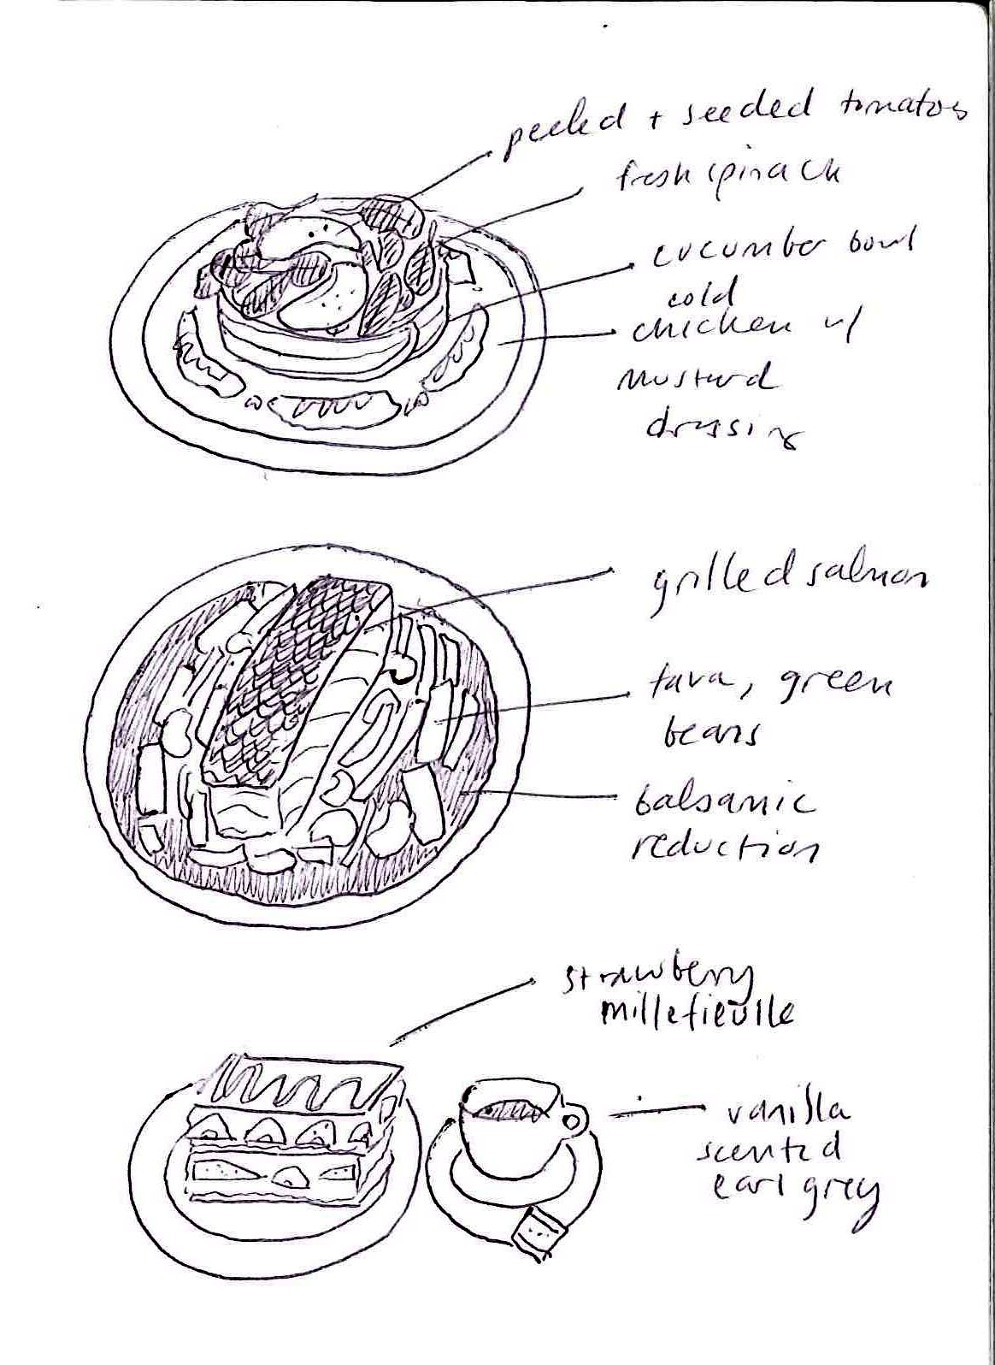 peeled + seeded tomatoes
fresh spinach
cucumber bowl
cold
chicken w/
mustard
dressing
grilled salmon
fava, green
beans
balsamic
reduction
strawberry
millefieulle
vanilla
scented
earl grey